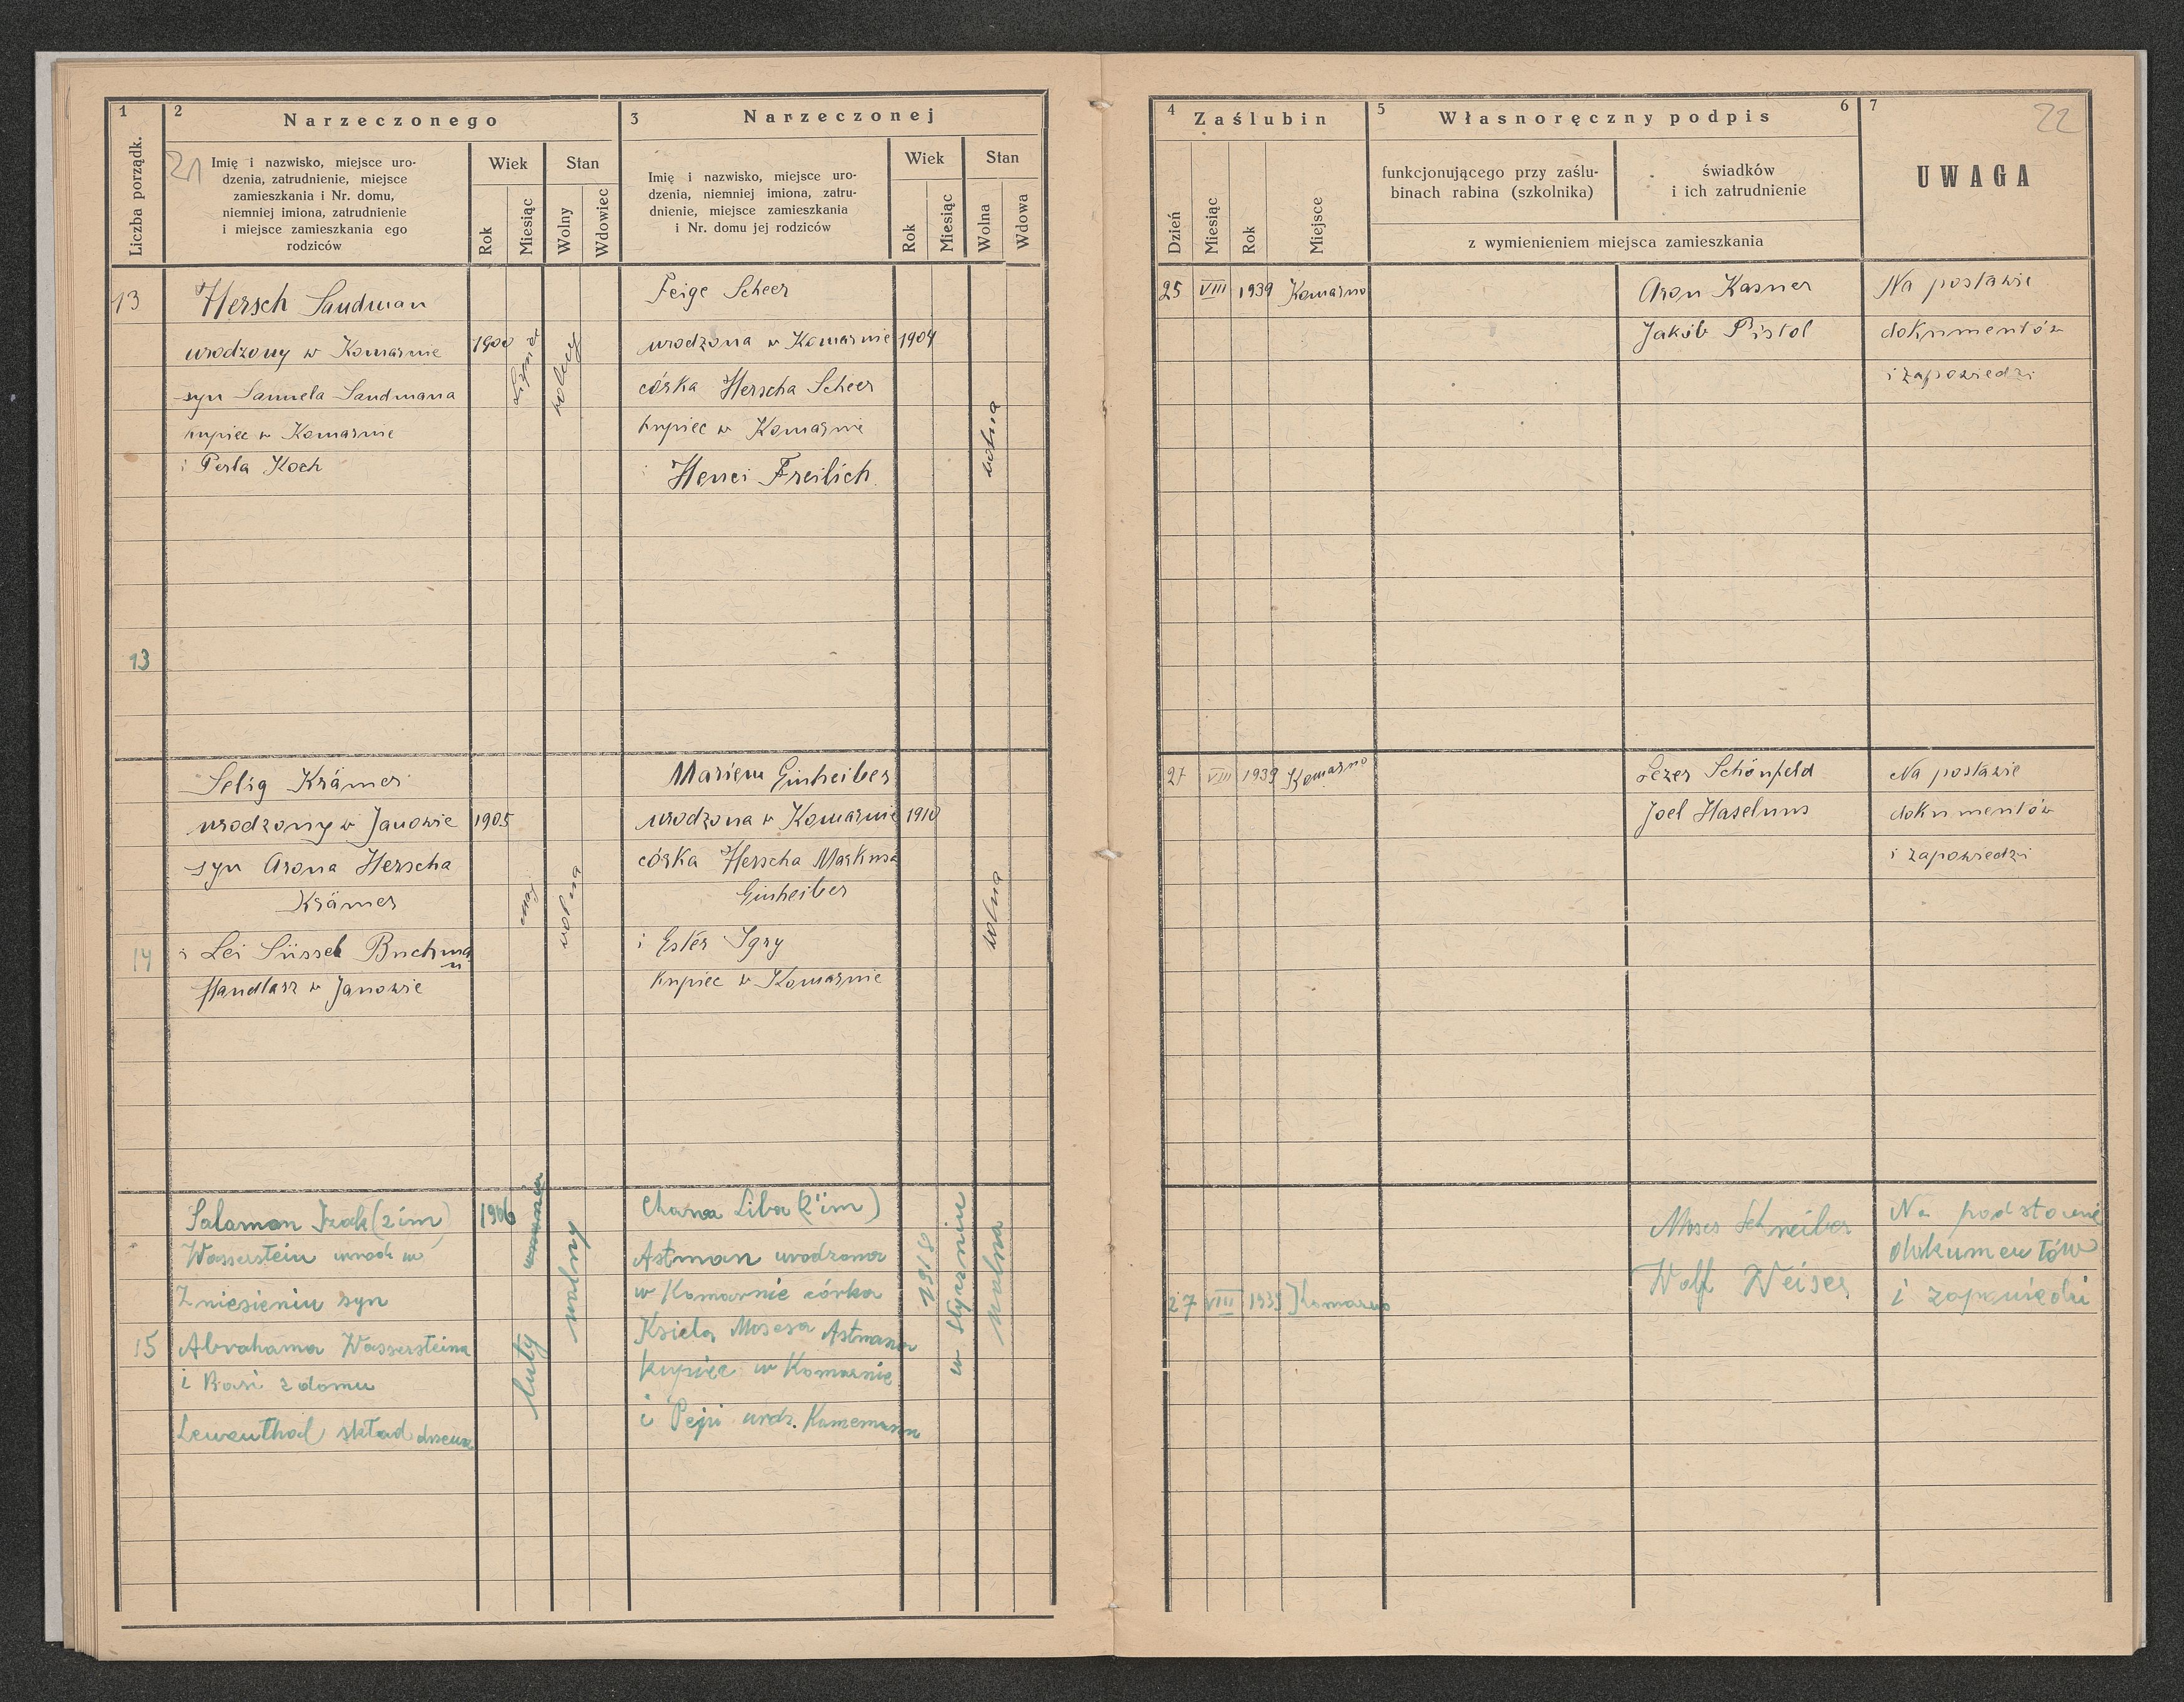 1
2
Narzeczonego
3
Narzeczonej
Liczba porządk.
21
Imię i nazwisko, miejsce uro-
dzenia, zatrudnienie, miejsce
zamieszkania i Nr. domu,
niemniej imiona, zatrudnienie
i miejsce zamieszkania ego
rodziców
Wiek
Stan
Rok
Miesiąc
Wolny
Wdowiec
Imię i nazwisko, miejsce uro-
dzenia, niemniej imiona, zatru-
dnienie, miejsce zamieszkania
i Nr. domu jej rodziców
Wiek
Stan
Rok
Miesiąc
Wolna
Wdowa
13
Hersch Sandman
urodzony w Komarnie
syn Samuela Sandmana
kupiec w Komarnie
i Perla Koch
1900
wolny
Feige Scheer
urodzona w Komarnie
córka Herscha Scheer
kupiec w Komarnie
i Henci Freilich
1904
wolna
13
Selig Krämer
urodzony w Janowie
syn Arona Herscha
Krämer
i Lei Süssel Buchma
n
Handlarz w Janowie
1905
maj
wolna
Mariem Ginheiber
urodzona w Komarnie
córka Herscha Markusa
Ginheiber
i Ester Igry
kupiec w Komarnie
1910
wolna
14
Salamon Izak (2 im)
Wasserstein urodz w
Zniesieniu syn
Abrahama Wassersteina
i Rosi z domu
Lewenthal skład drzewa
1906
luty
wolny
Chana Liba (2 im)
Astman urodzona
w Komarnie córka
Ksiela Mosesa Astmana
kupiec w Komarnie
i Pejri urdz. Kamermann
1918
w styczniu
wolna
15
4
Zaślubin
5
Własnoręczny podpis
6
7
22
Dzień
Miesiąc
Rok
Miejsce
funkcjonującego przy zaślu-
binach rabina (szkolnika)
świadków
i ich zatrudnienie
z wymienieniem miejsca zamieszkania
UWAGA
25 VIII 1939 Komarno
Aron Kasner
Jakób Pistol
Na postawie
dokumentów
i zapowiedzi
27 VIII 1939 Komarno
Lezer Schönfeld
Joel Haselnus
Na postawie
dokumentów
i zapowiedzi
27 VIII 1939 Komarno
Moses Schneiber
Wolf Weiser
Na podstawie
dokumentów
i zapowiedzi